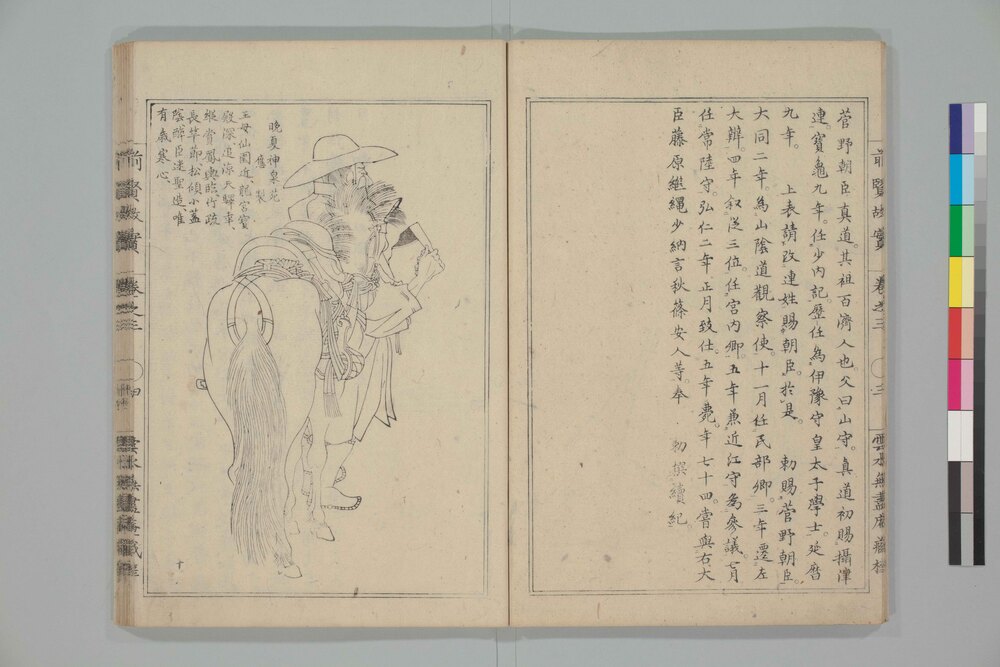 菅野朝臣真道。其祖百濟人也。父曰山守。真道初賜攝津
連。寶龜九年。任少內記。歷任為伊豫守皇太子學士。延曆
九年。上表請改連姓賜朝臣。於是。勅賜菅野朝臣。
大同二年。為山陰道觀察使。十一月任民部卿。三年遷左
大辨。四年叙從三位。任宮內卿。五年兼近江守為參議。七月
任常陸守。弘仁二年正月致仕。五年薨。年七十四。嘗與右大
臣藤原繼繩少納言秋篠安人等。奉勅撰續紀。
前賢故實
卷之三
三
雲水無盡庵藏
晚夏神泉苑
應製
王母仙園近龍宮寶
殿深。追涼天驛幸。
縱賞鳳輿臨。竹疏
長竿節。松傾小蓋
陰。醉臣迷聖造。唯
有歲寒心。
前賢故實
卷之三
四